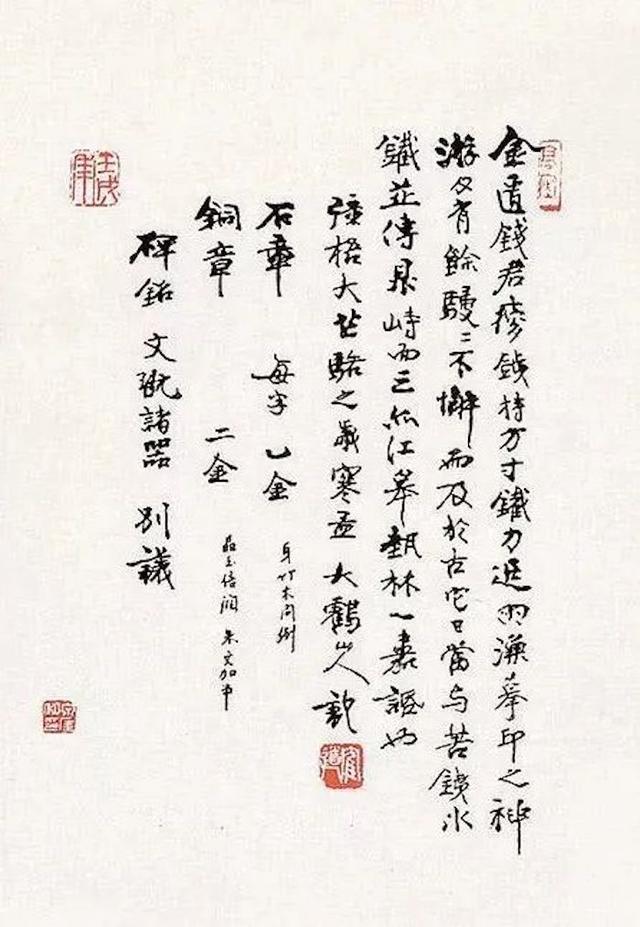 金匱錢君瘦銕持方寸鐵力追兩漢摹印之神
游刃有餘駸〻不懈而及於古它日當与苦銕冰
鐵並傳鼎峙而三亦江皋藝林一嘉話也
彊梧大芒駱之歲寒孟 大鶴山人記
石章 每字乙金 牙竹木同例
銅章 二金 晶玉倍潤 朱文加半
碑銘 文 諸器 別議
壬戌年